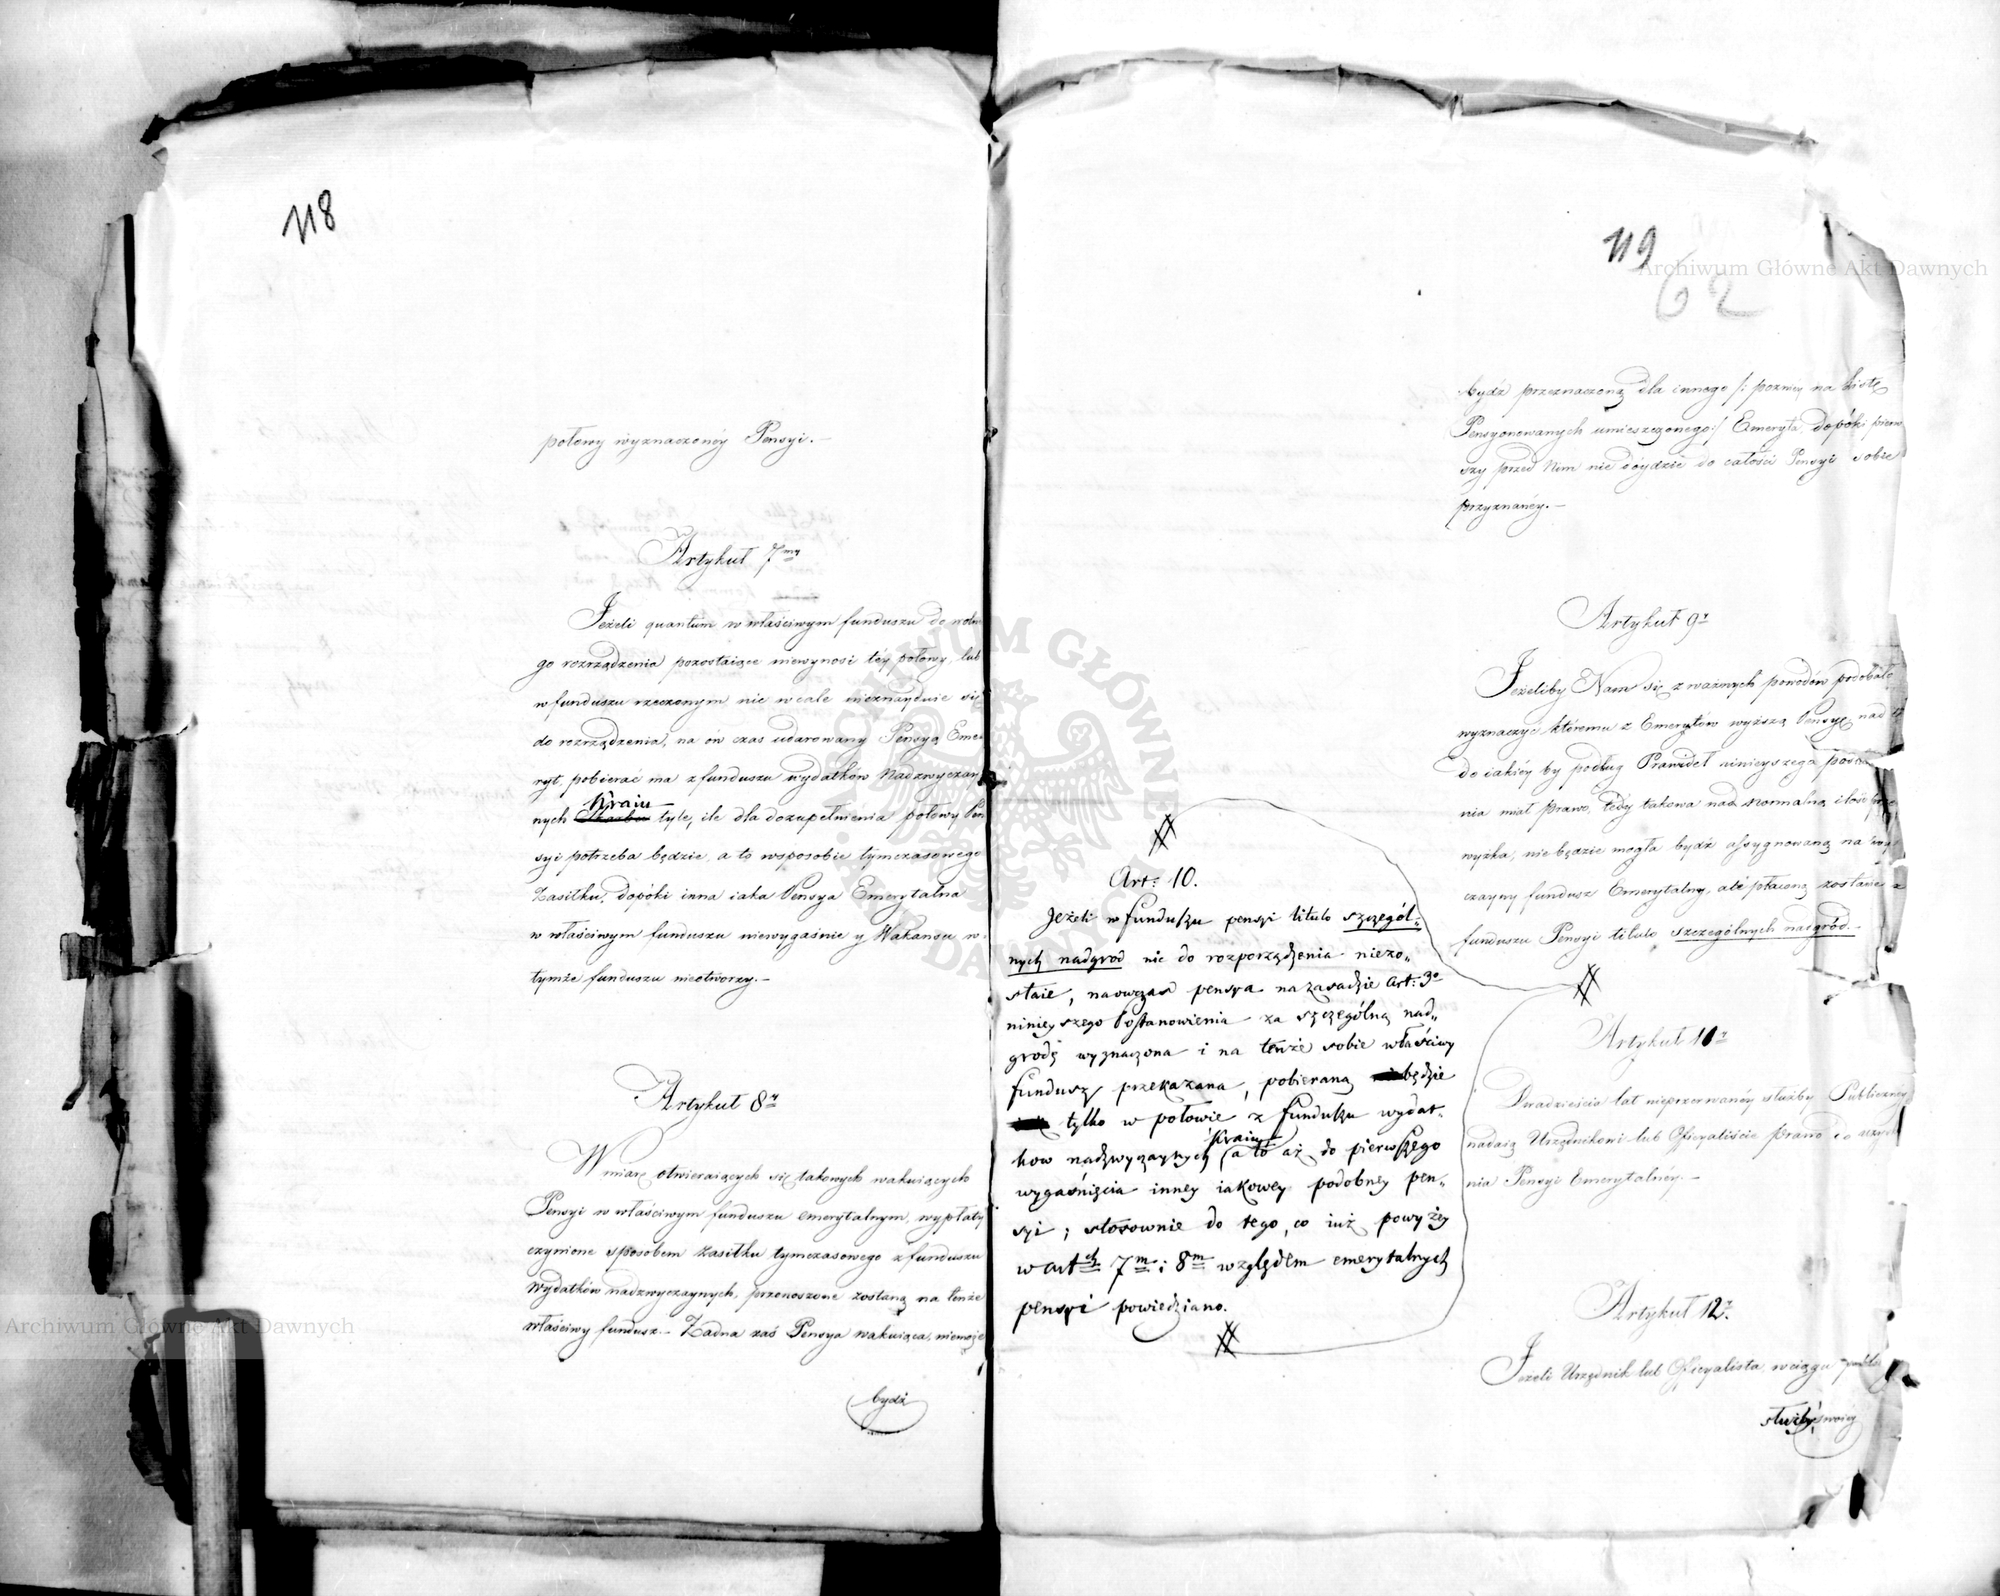 118
połowy wyznaczonéy Pensyi. —
Artykuł 7my
Jeżeli quantum w właściwym funduszu do wolne
go rozrządzenia pozostaiące niewynosi téy połowy, lub
w funduszu rzeczonym nic wcale nieznayduie się
do rozrządzenia, na ów czas udarowany Pensyą Eme
ryt, pobierać ma z funduszu wydatków Nadzwyczay
Kraiu
nych Skarbu tyle, ile dla dozupełnienia połowy Pen
syi potrzeba będzie, a to wsposobie tymczasowego
Zasiłku, dopóki inna iaka Pensya Emerytalna
w właściwym funduszu niewygaśnie y Wakansu w
tymże funduszu nieotworzy. —
Artykuł 8y
W miarę otwieraiących się takowych wakuiących
Pensyi w właściwym funduszu emerytalnym, wypłaty
czynione sposobem zasiłku tymczasowego z funduszu
Wydatków nadzwyczaynych, przenoszone zostaną na tenże
właściwy fundusz. — Żadna zaś Pensya wakuiąca, niemoże
bydź
119
62
bydź przeznaczoną dla innego /: pozniey na Listę
Pensyonowanych umieszczonego :/ Emeryta, dopóki pierw
szy przed Nim nie dóydzie do całości Pensyi sobie
przyznanéy. —
Artykuł 9y
Jeżeliby Nam się z ważnych powodów podobało
wyznaczyć któremu z Emerytów wyższą Pensyę nad tę
do iakiéy by podług Prawideł ninieyszego
nia miał prawo, tedy takowa nad normalną ilość
wyżka, nie będzie mogła bydź assygnowaną na
czayny fundusz Emerytalny, ale płaconą zostanie z
funduszu Pensyi titulo szczególnych nadgród. —
Art: 10.
Jeżeli w funduszu pensyi titulo szczegól-
nych nadgrod nic do rozporządzenia niezo-
staie, naowczas pensya na zasadzie Art: 3o
ninieyszego Postanowienia za szczególną nad-
grodę wyznaczona i na tenże sobie właściwy
fundusz przekazana, pobieraną będzie
tylko w połowie z funduszu wydat-
Kraiu
kow nadzwyczaynych, a to aż do pierwszego
wygaśnięcia inney iakowey podobney pen-
syi; stosownie do tego, co iuż powyżey
w artch 7m i 8m względem emerytalnych
pensyi powiedziano.
Artykuł 11y
Dwadzieścia lat nieprzerwanéy służby Publiczney
nadaią Urzędnikowi lub Oficyaliście prawo do uzyska
nia Pensyi Emerytalnéy. —
Artykuł 12y.
Jeżeli Urzędnik lub Oficyalista, wciągu
służby swoiéy
Archiwum Główne Akt Dawnych
Archiwum Główne Akt Dawnych
ARCHIWUM GŁÓWNE AKT DAWNYCH